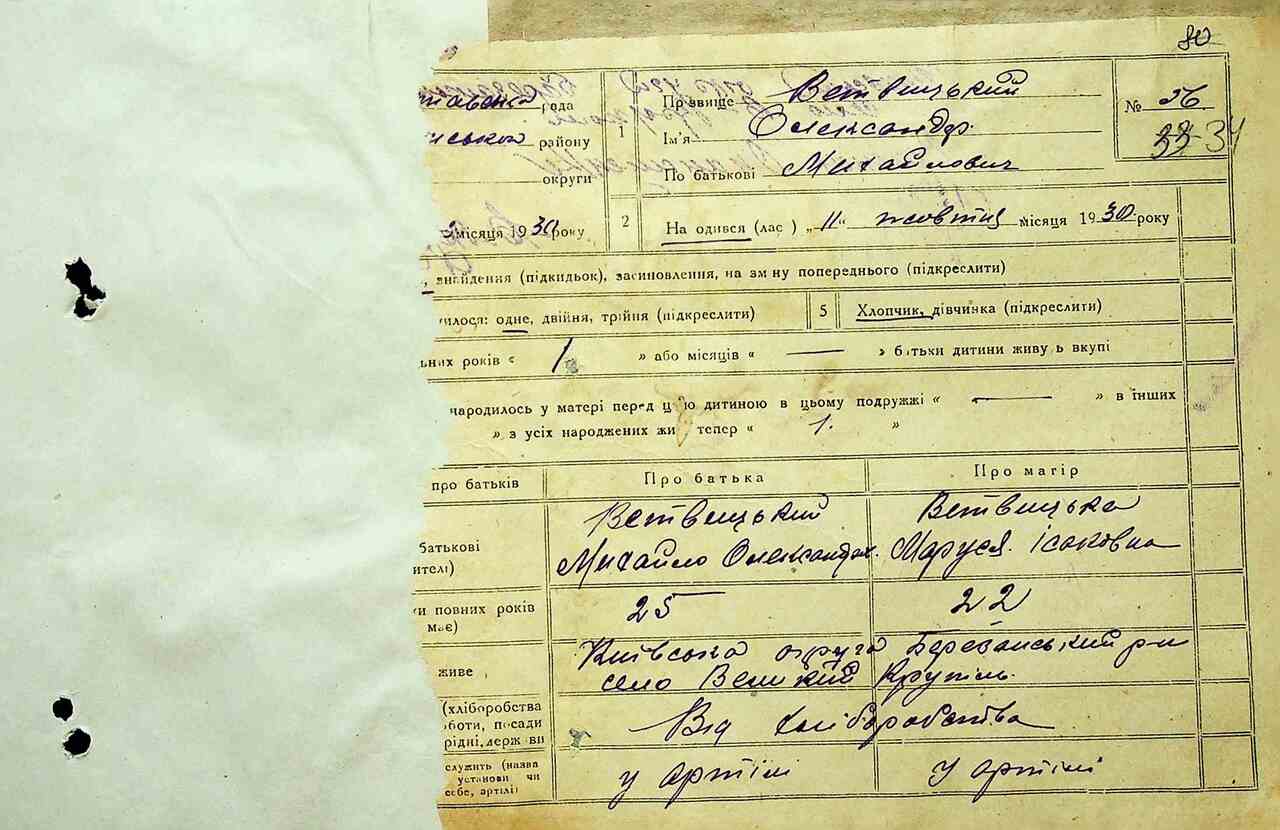 80
рада
району
округи
1
Прізвище Ветвицький
Ім'я Олександр.
По батькові Михайлович
№ 26
33 34
місяця 1930 року
2
На одився (лас ) „11“ жовтня місяця 1930 року
знайдення (підкидьок), засиновлення, на зм ну попереднього (підкреслити)
илося: одне, двійня, трійня (підкреслити)
5
Хлопчик, дівчинка (підкреслити)
льних років « 1 » або місяців « — » батьки дитини живу ь вкупі
народилось у матері перед ц ю дитиною в цьому подружжі « — » в інших
» з усіх народжених жи тепер « 1. »
про батьків
Про батька
Про матір
Ветвицький
Ветвицька
батькові
ителі)
Михайло Олександр.
Маруся Ісаковна
и повних років
має)
25
22
живе
Київська округа Березанський р-н
село Великий Крупіль.
(хліборобства
боти, посади
рідні, держ ви
Від хліборобства
служить (назва
установи чи
себе, артілі)
у артілі
у артілі